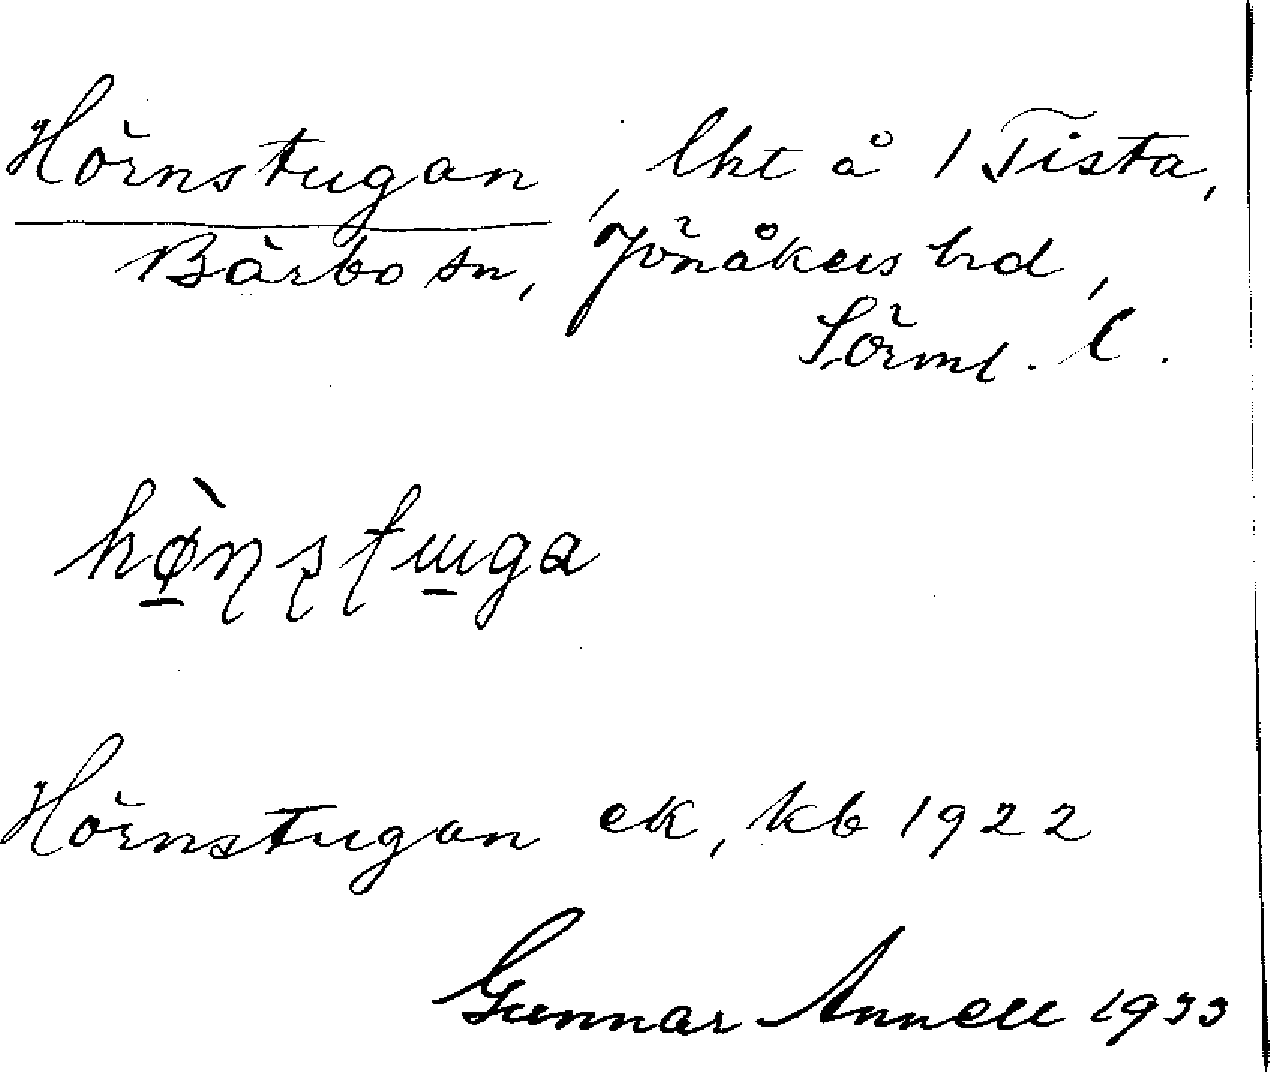 Hörnstugan, lht å 1 Tista,
Bärbo sn, Jönåkers hd,
Sörml. l.
Hörnstugan ek, kb 1922
Gunnar Annell 1933